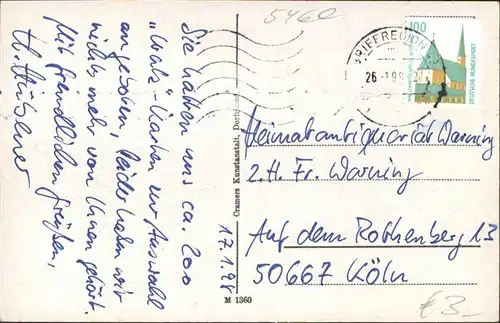 5460
Sie hatten uns ca. 200
"Walz"-Karten zur Auswahl
angeboten, leider haben wir
nichts mehr von Ihnen gehört.
Mit freundlichen Grüßen,
17.1.98
Cramers Kunstanstalt, Dortmund
M 1360
BRIEFREGION
26.-1.98
100
DEUTSCHE BUNDESPOST
Heimatantiquariat Warning
z.H. Fr. Warning
Auf dem Rothenberg 13
50667 Köln
€ 3.-